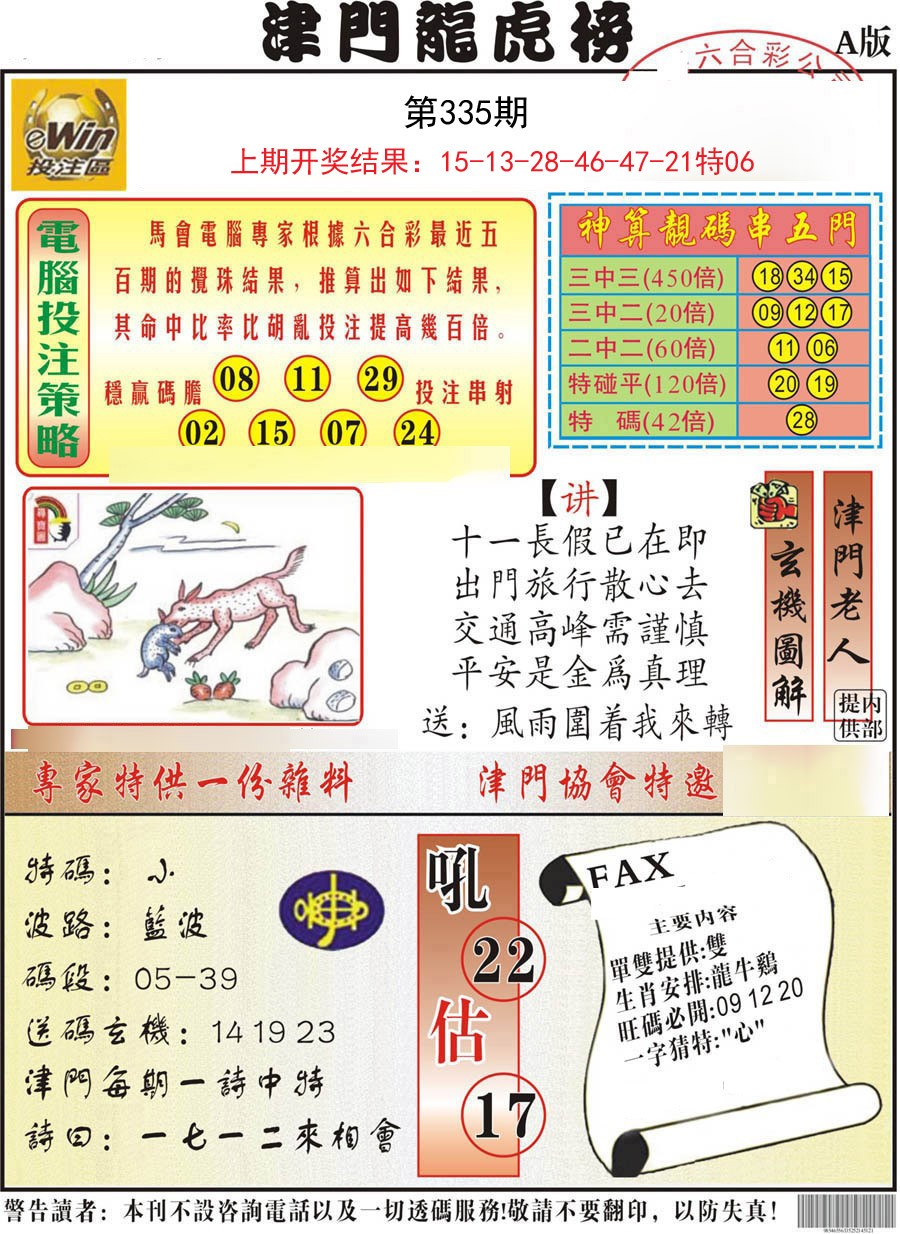 津門龍虎榜
A版
六合彩公
eWin
投注區
第335期
上期开奖结果：15-13-28-46-47-21特06
電腦投注策略
馬會電腦專家根據六合彩最近五
百期的攪珠結果，推算出如下結果，
其命中比率比胡亂投注提高幾百倍。
穩贏碼膽 08 11 29 投注串射
02 15 07 24
神算靚碼串五門
三中三(450倍) 18 34 15
三中二(20倍) 09 12 17
二中二(60倍) 11 06
特碰平(120倍) 20 19
特 碼(42倍) 28
尋寶圖
【讲】
十一長假已在即
出門旅行散心去
交通高峰需謹慎
平安是金爲真理
送：風雨圍着我來轉
玄機圖解
津門老人
內部提供
專家特供一份雜料
津門協會特邀
特碼：小
波路：藍波
碼段：05-39
送碼玄機：14 19 23
津門每期一詩中特
詩曰：一七一二來相會
吼
22
估
17
FAX
主要內容
單雙提供:雙
生肖安排:龍牛鷄
旺碼必開:09 12 20
一字猜特:"心"
警告讀者：本刊不設咨詢電話以及一切透碼服務!敬請不要翻印，以防失真!